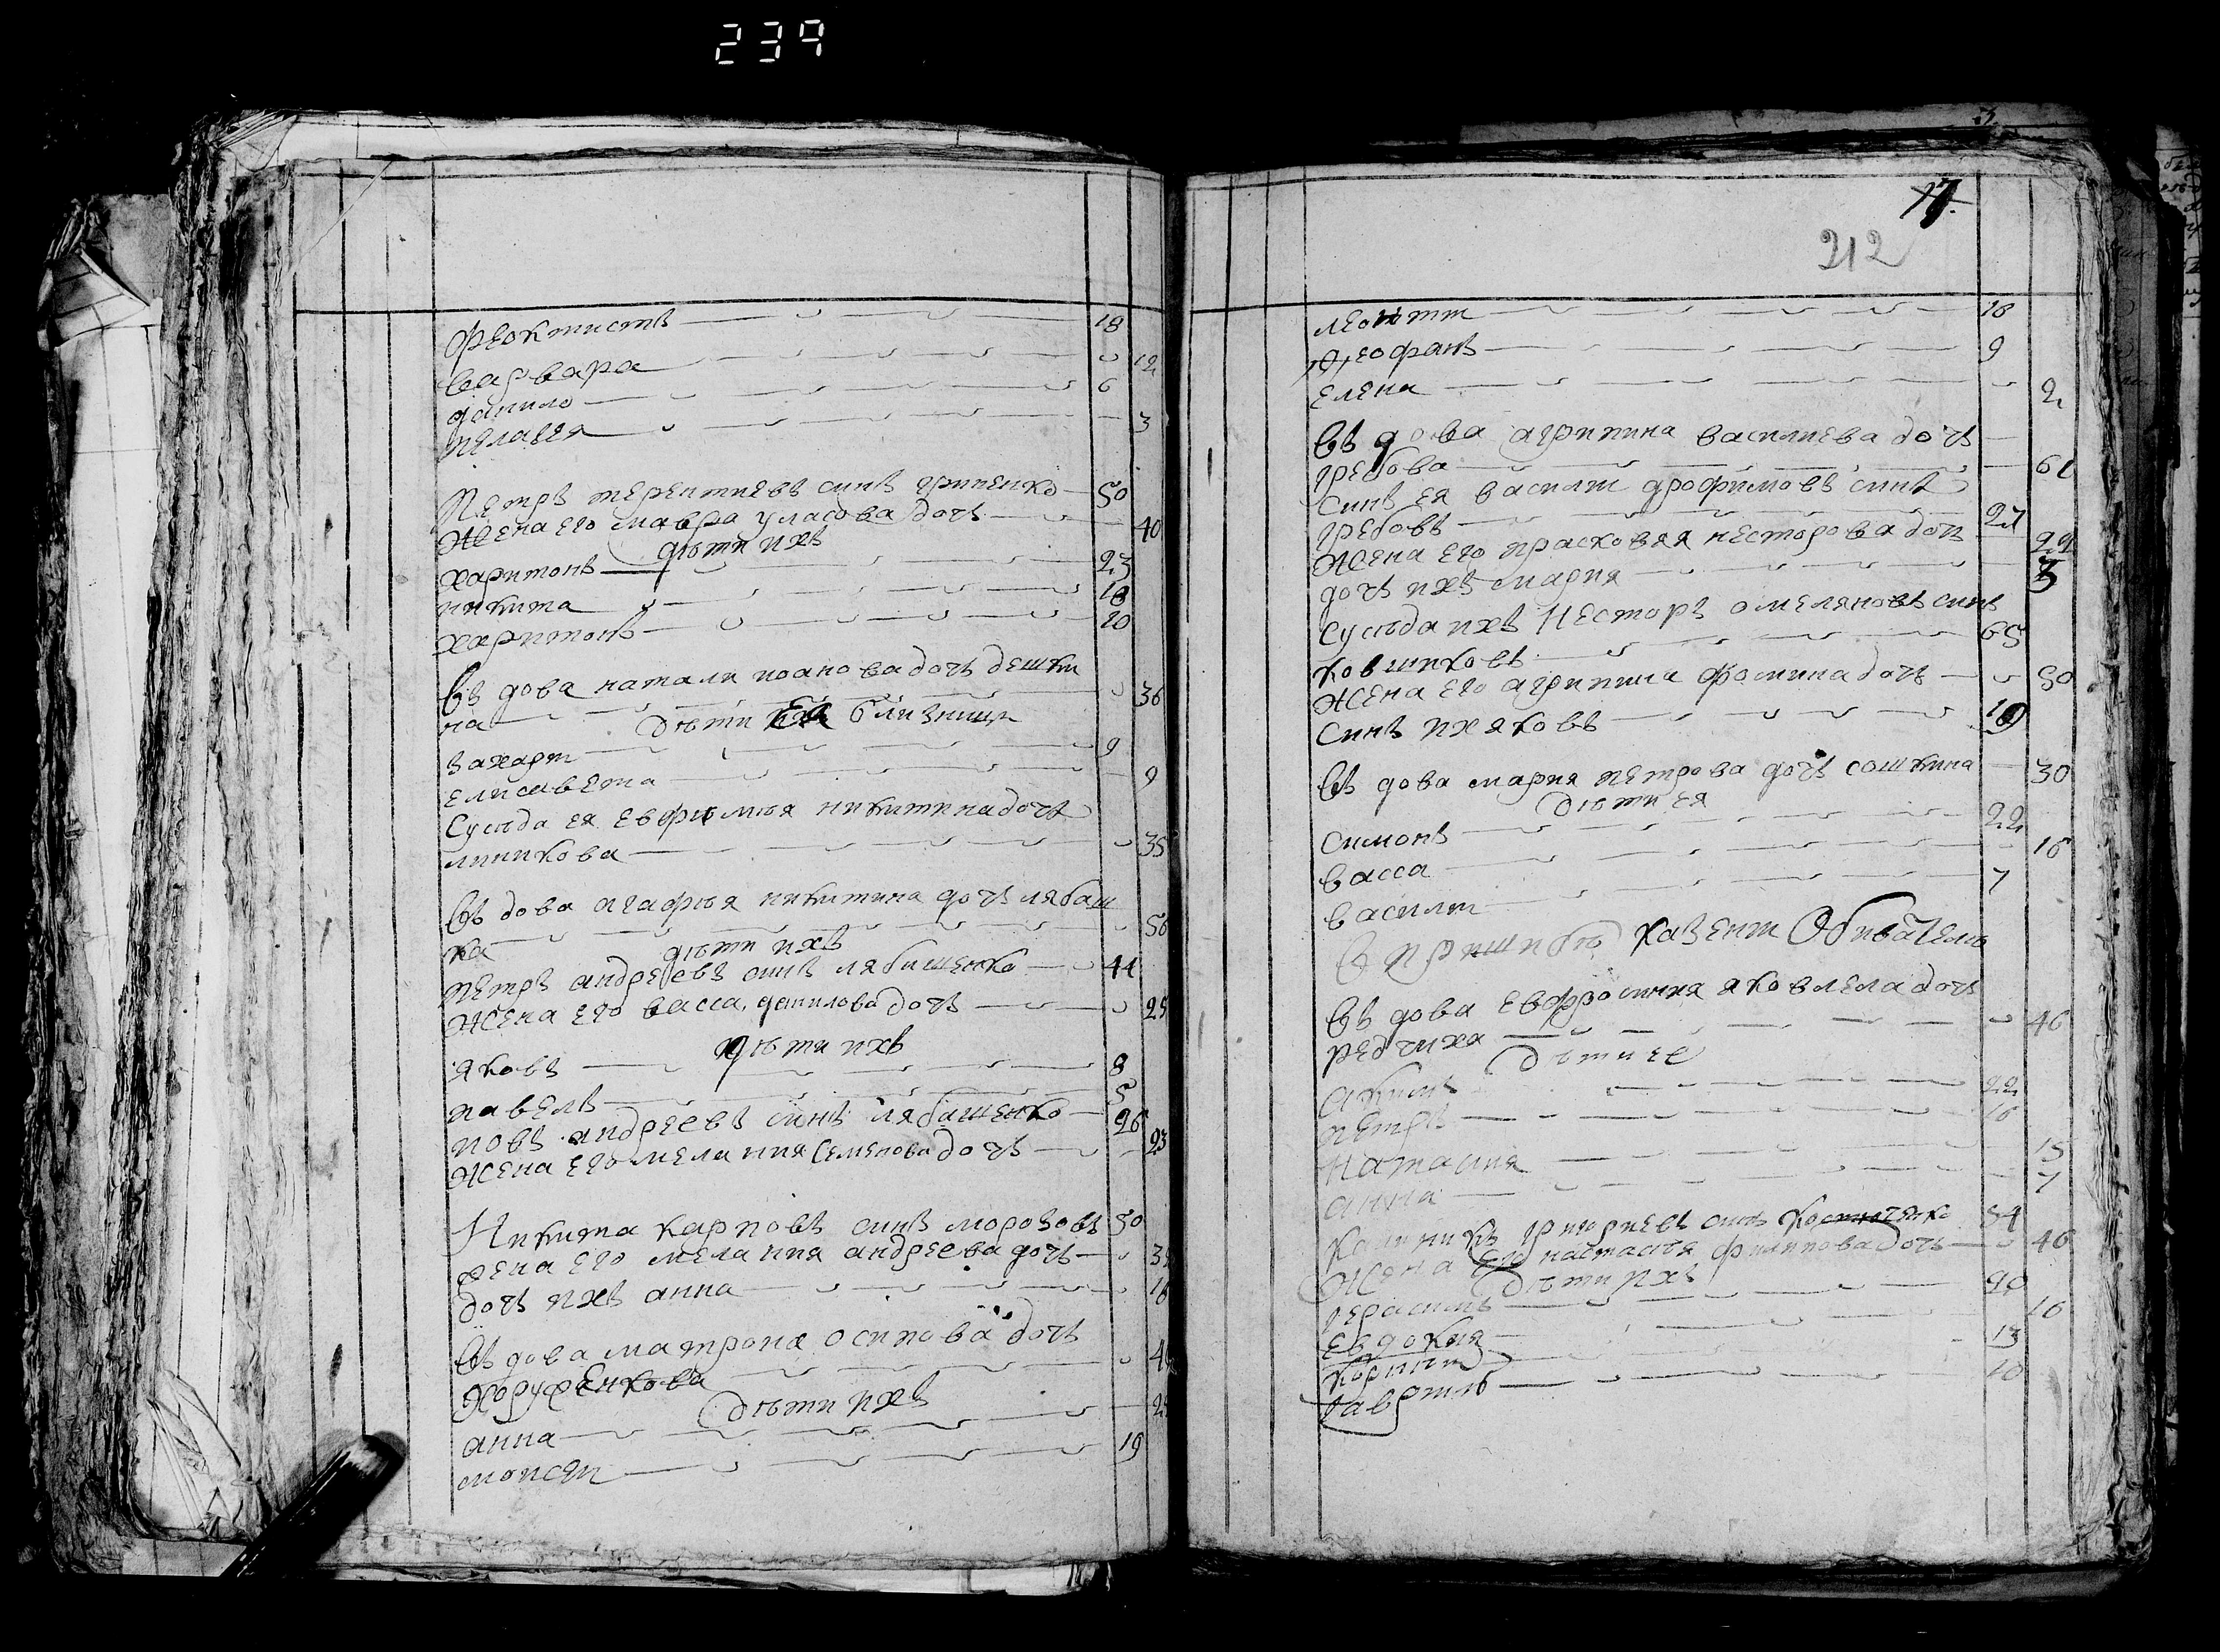 239
Феоктистъ 18
варвара 12
данило 6
пелагея 3
Петръ терентиевъ синъ гриненко 50
Жена его мавра уласова дочъ 40
дѣти ихъ
харитонъ 23
никита 18
харитонъ 10
Въдова натали иоанова дочъ дешки
на 36
дѣти ея близници
захарти 9
елисавета 9
Сусѣда ея евфимѣя никитина дочъ
линикова 35
Въдова агафѣя никитина дочъ лябаш
ка 50
дѣти ихъ
Петръ андреевъ синъ лябашенко 44
Жена его васса данилова дочъ 25
дѣти ихъ
яковъ 8
павелъ 5
иовъ андреевъ синъ лябашенко 26
Жена его мелания Семенова дочъ 23
Никита карповъ синъ морозовъ 50
жена его мелания андреева дочъ 3
дочъ ихъ анна 16
Въдова матрона осипова дочъ
Хоруженкова 4
дѣти ихъ
анна 2
моисеи 19
17
212
леонти 18
Феофанъ 9
елена 2
Въдова агрипина василиева дочъ
гребова 61
Синъ ея василии дрофимовъ синъ
гребовъ 27
Жена его прасковяя несторова дочъ 22
дочъ ихъ мария 3
Сусѣда ихъ Несторъ омеляновъ синъ
ковшиковъ 65
Жена его агрипина фомина дочъ 50
Синъ их яковъ 19
Въдова мария петрова дочъ сошкина 30
дѣти ея
симонъ 22
васса 16
василии 7
казении Обиватель
Въдова евфросиния яковлела дочъ
редчиха 46
дѣти ее
акимъ 22
петръ 16
Наталия 15
анна 7
григориевъ синъ 54
Жена его настасѣя филипова дочъ 46
дѣти ихъ
герасимъ 20
Евдокия 16
Корнии 13
Гаврилъ 10